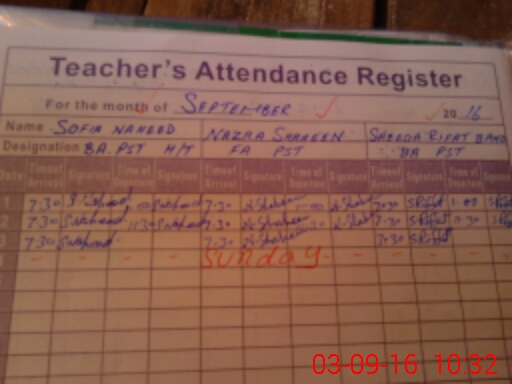 Teacher's Attendance Register
For the month of SEPTEMBER 2016
Name SOFIA NAHEED NAZRA SHAHEEN SAEEDA RIFAT BANO
Designation BA. PST H/T FA PST BA PST
Date Time of Arrival Signature Time of Departure Signature Time of Arrival Signature Time of Departure Signature Time of Arrival Signature Time of Departure
1 7:30 S.Naheed 1:00 S.Naheed 7:30 N.Shaheen 1:00 N.Shah 7:30 S.Riffat 1:00
2 7:30 S.Naheed 11:30 S.Naheed 7:30 N.Shaheen 7:30 S.Riffat
3 7:30 S.Naheed 7:30 N.Shaheen 7:30 S.Riffat
Sunday
03-09-16 10.32